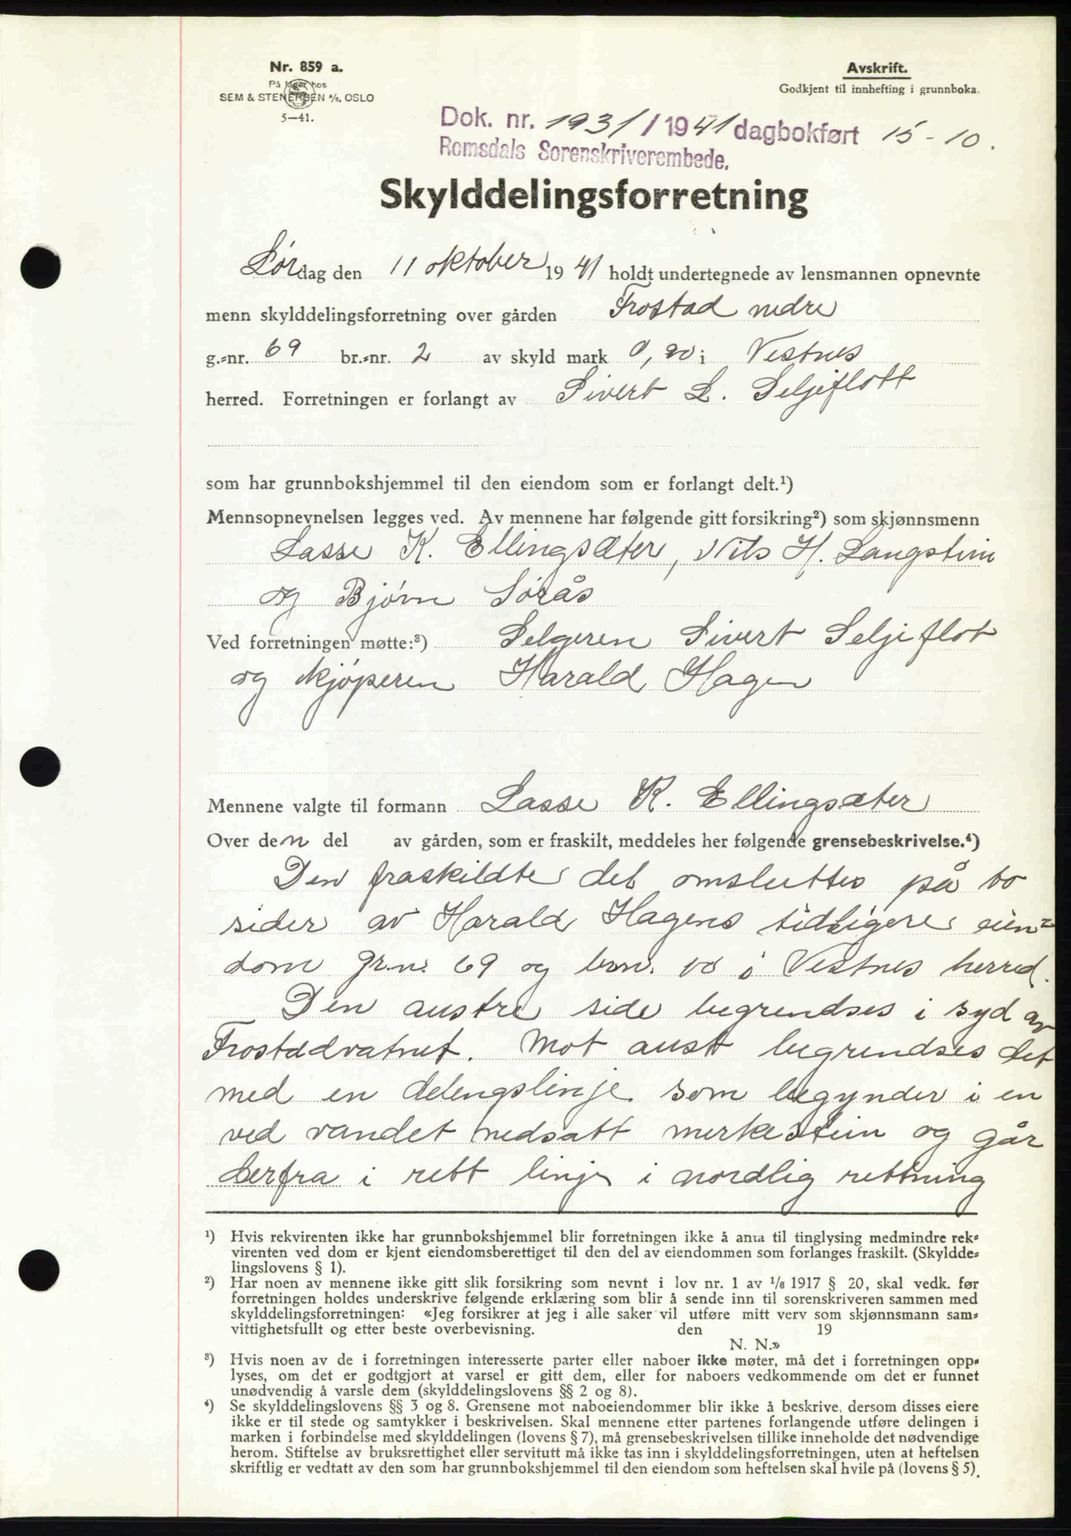 Nr. 859 a.
På lager hos
SEM & STENERSEN A/S. OSLO
5—41.
Avskrift.
Godkjent til innhefting i grunnboka.
Dok. nr. 1931/1941 dagbokført 15-10.
Romsdals Sorenskriverembede.
Skylddelingsforretning
Lørdag den 11 oktober 1941 holdt undertegnede av lensmannen opnevnte
menn skylddelingsforretning over gården Frostad nedre
g.=nr. 69 br.=nr. 2 av skyld mark 0,90 i Vestnes
herred. Forretningen er forlangt av Sivert L. Seljeflott
som har grunnbokshjemmel til den eiendom som er forlangt delt.¹)
Mennsopnevnelsen legges ved. Av mennene har følgende gitt forsikring²) som skjønnsmenn
Lasse K. Ellingsæter, Nils H. Langstein
og Bjørn Sørås
Ved forretningen møtte:³) Selgeren Sivert Seljeflot
og kjøperen Harald Hagen
Mennene valgte til formann Lasse K. Ellingsæter
Over den del av gården, som er fraskilt, meddeles her følgende grensebeskrivelse.⁴)
Den fraskildte del omsluttes på to
sider av Harald Hagens tidligere eien=
dom gr.n. 69 og brn. i Vestnes herred.
Den austre side begrendses i syd av
Frostadvatnet. Mot aust begrendses det
med en delengslinje som begynder i en
ved vandet nedsatt merkestein og går
derfra i rett linje i nordlig rettning
¹) Hvis rekvirenten ikke har grunnbokshjemmel blir forretningen ikke å anta til tinglysing medmindre rek=
virenten ved dom er kjent eiendomsberettiget til den del av eiendommen som forlanges fraskilt. (Skyldde=
lingslovens § 1).
²) Har noen av mennene ikke gitt slik forsikring som nevnt i lov nr. 1 av 1/6 1917 § 20, skal vedk. før
forretningen holdes underskrive følgende erklæring som blir å sende inn til sorenskriveren sammen med
skylddelingsforretningen: «Jeg forsikrer at jeg i alle saker vil utføre mitt verv som skjønnsmann sam=
vittighetsfullt og etter beste overbevisning. den 19
N. N.»
³) Hvis noen av de i forretningen interesserte parter eller naboer ikke møter, må det i forretningen opp=
lyses, om det er godtgjort at varsel er gitt dem, eller for naboers vedkommende om det er funnet
unødvendig å varsle dem (skylddelingslovens §§ 2 og 8).
⁴) Se skylddelingslovens §§ 3 og 8. Grensene mot naboeiendommer blir ikke å beskrive, dersom disses eiere
ikke er til stede og samtykker i beskrivelsen. Skal mennene etter partenes forlangende utføre delingen i
marken i forbindelse med skylddelingen (lovens § 7), må grensebeskrivelsen tillike inneholde det nødvendige
herom. Stiftelse av bruksrettighet eller servitutt må ikke tas inn i skylddelingsforretningen, uten at heftelsen
skriftlig er vedtatt av den som har grunnbokshjemmel til den eiendom som heftelsen skal hvile på (lovens § 5).